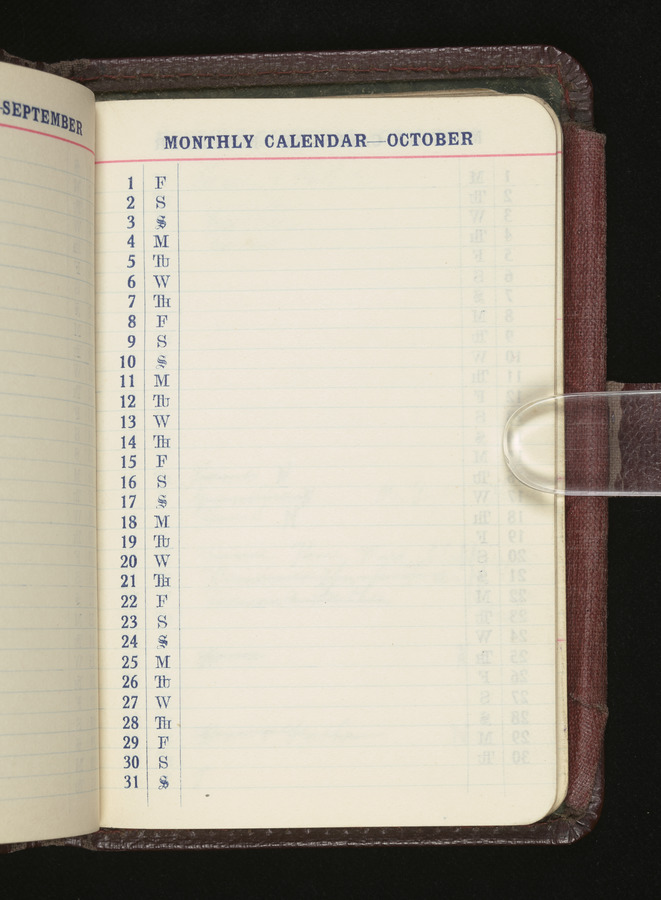 -SEPTEMBER
MONTHLY CALENDAR—OCTOBER
1 F
2 S
3 S
4 M
5 TU
6 W
7 TH
8 F
9 S
10 S
11 M
12 TU
13 W
14 TH
15 F
16 S
17 S
18 M
19 TU
20 W
21 TH
22 F
23 S
24 S
25 M
26 TU
27 W
28 TH
29 F
30 S
31 S